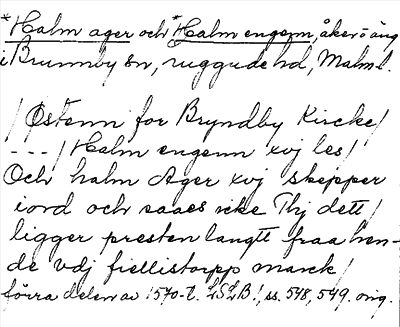 *Halm ager och *Halm engenn, åker o äng
i Brunnby sn, ruggude hd, Malm l.
/Østenn for Bryndby Kircke/
---/Halm engenn xvj les/
Och halm Ager xvj skepper
iord och saaes icke Thj dett/
ligger presten langtt fraa hen-
de vdj fiellistorpp marck/
förra delen av 1570-t. LSLB1, ss. 548, 549. orig.